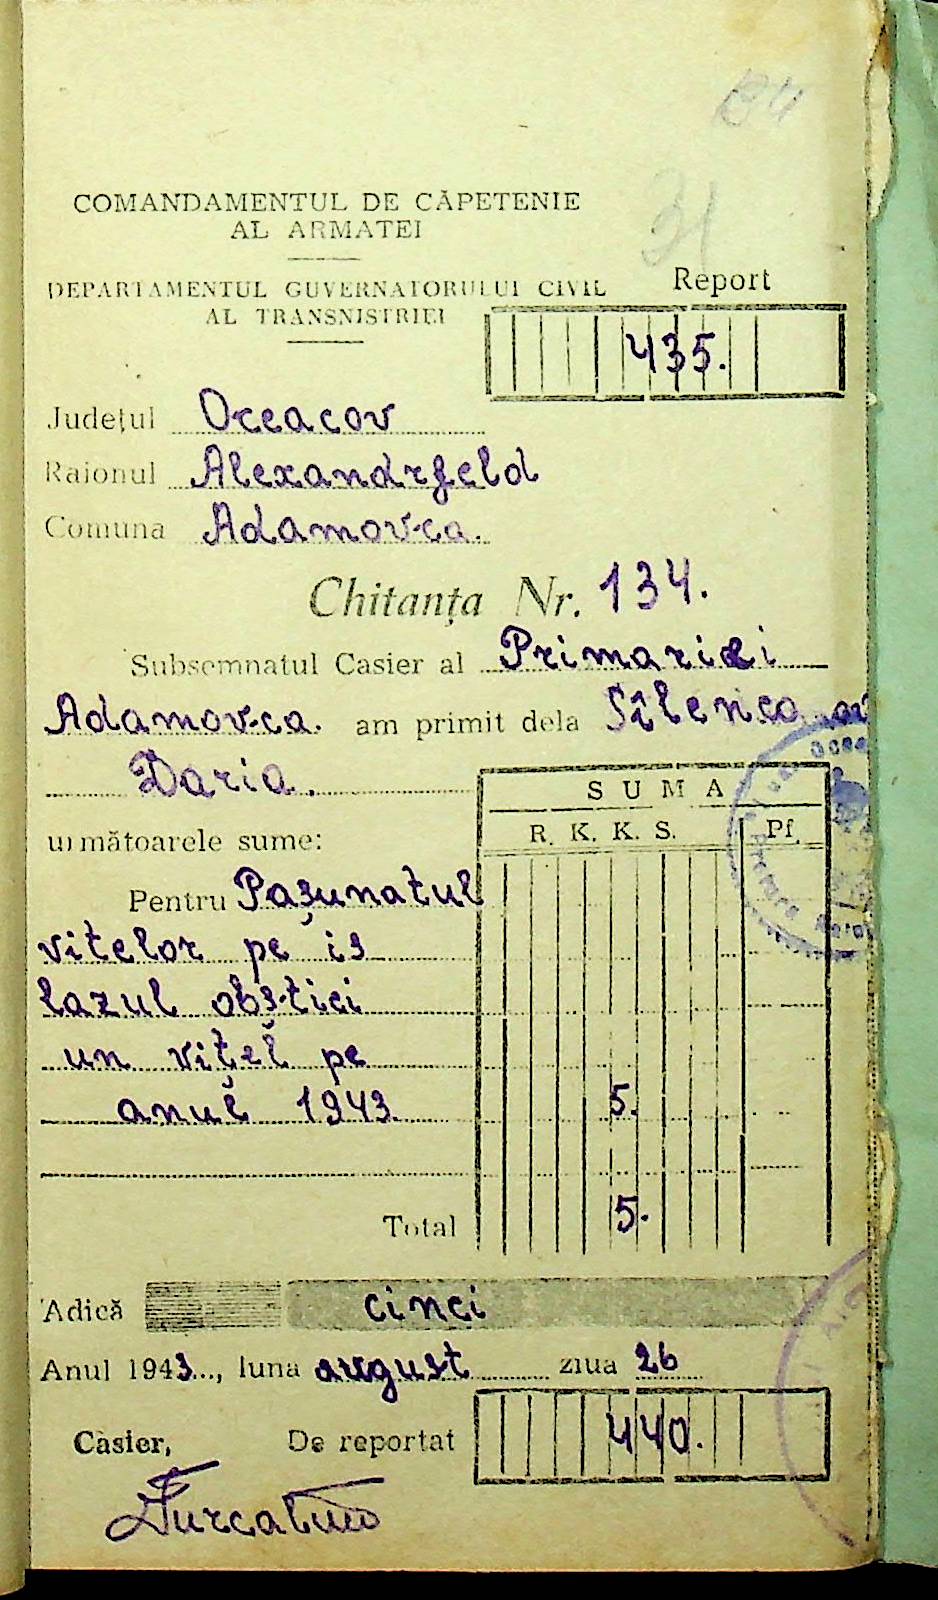 134
31
COMANDAMENTUL DE CĂPETENIE
AL ARMATEI
DEPARTAMENTUL GUVERNATORULUI CIVIL
AL TRANSNISTRIEI
Report
435.
Județul Oceacov
Raionul Alexandrfeld
Comuna Adamovca.
Chitanța Nr. 134.
Subsemnatul Casier al Primariei
Adamovca. am primit dela Sîlenco
Daria.
SUMA
următoarele sume:
R. K. K. S. Pf.
Pentru Pașunatul
vitelor pe is
lazul obstici
un vițel pe
anul 1943. 5.
Total 5.
Adică cinci
Anul 1943..., luna august ziua 26
Casier, De reportat 440.